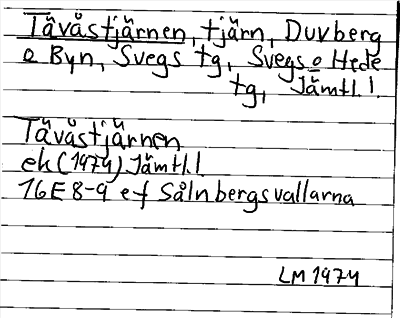 Tåvåstjärnen, tjärn, Duvberg
o Byn, Svegs tg, Svegs o Hede
tg, Jämtl. l.
Tåvåstjärnen
ek (1974) Jämtl. l
16E 8-9 e-f Sålnbergsvallarna
LM 1974